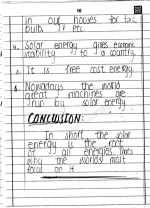 in our houses for
bulb, etc.
4. Solar energy gives economic
stability to a country.
5. It is free cost energy
6. Nowadays the world
great machines are
run by solar energy.
CONCLUSION:
In short the solar
energy is the root
of all energies, that's
why the world must
focus on it